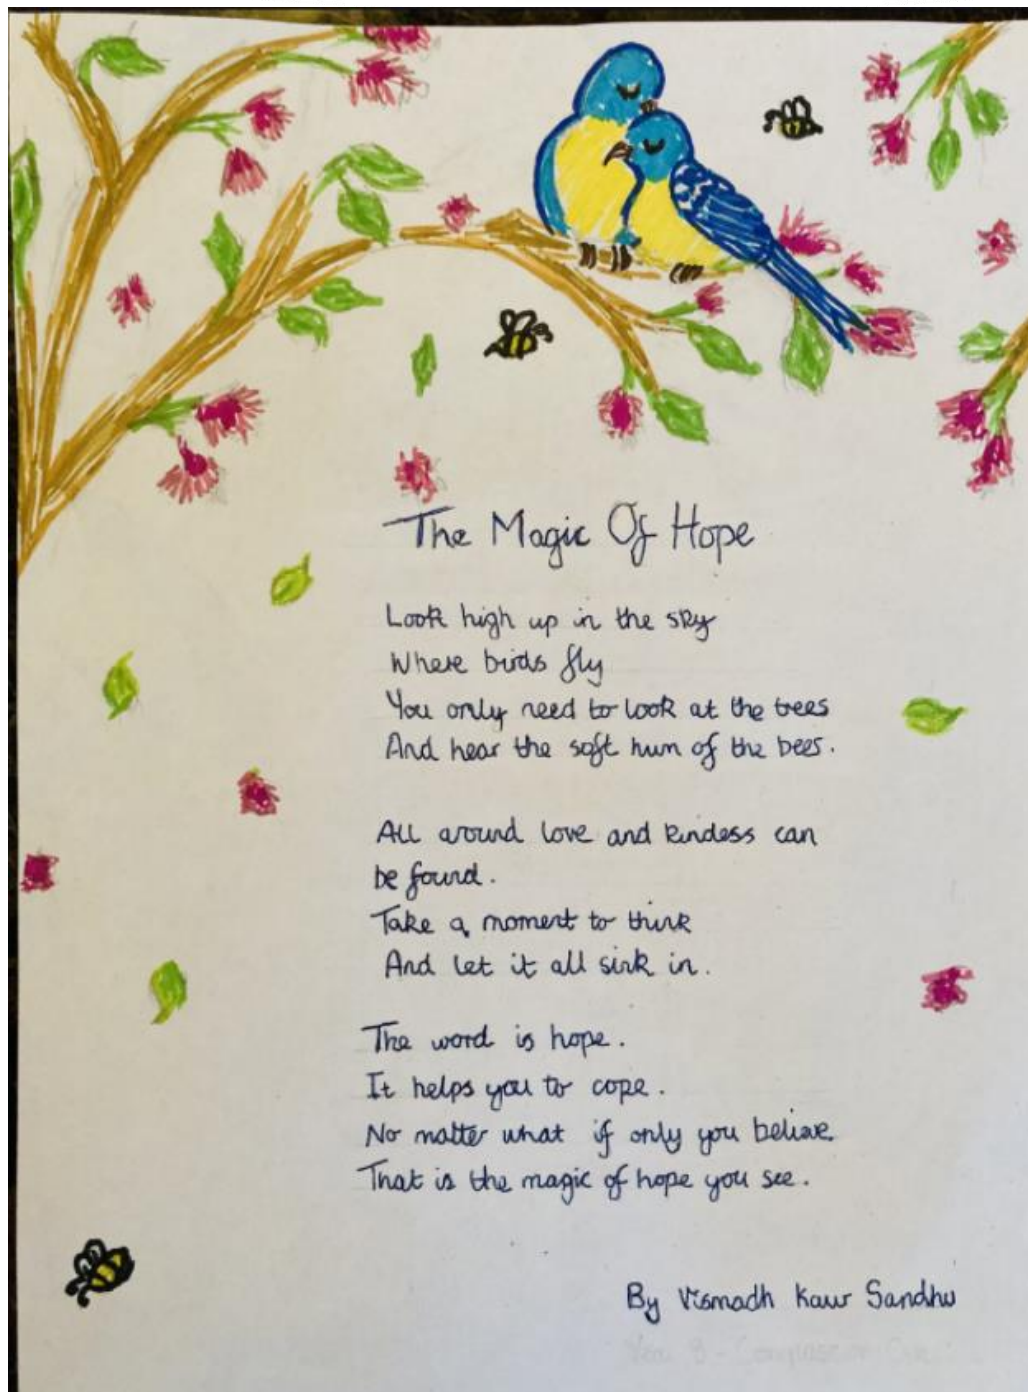 The Magic Of Hope
Look high up in the sky
Where birds fly
You only need to look at the trees
And hear the soft hum of the bees.
All around love and kindess can
be found.
Take a moment to think
And let it all sink in.
The word is hope.
It helps you to cope.
No matter what if only you believe.
That is the magic of hope you see.
By Vismadh Kaur Sandhu